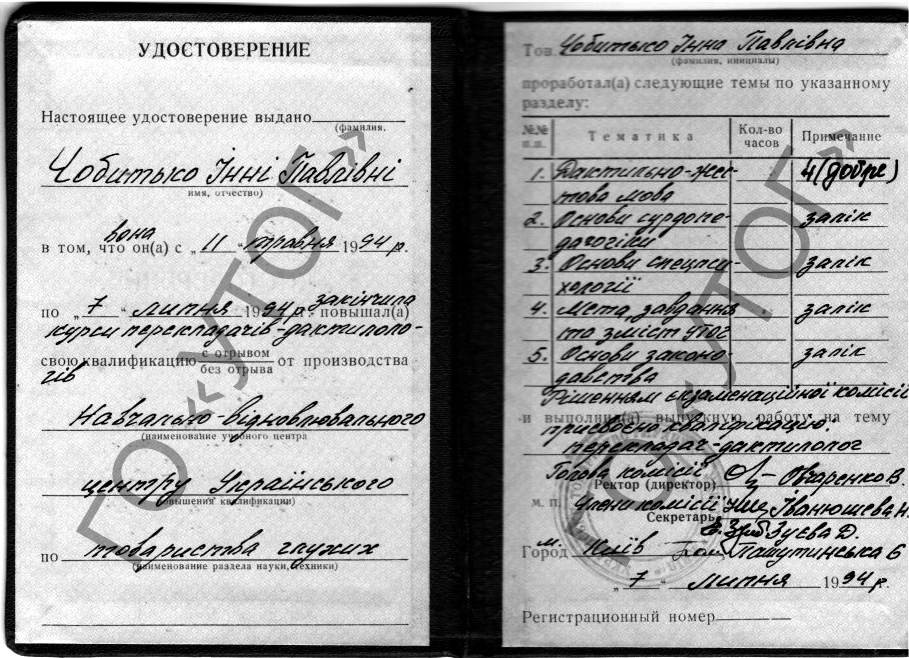 УДОСТОВЕРЕНИЕ
Настоящее удостоверение выдано
(фамилия,
Чобитько Інні Павлівні
имя, отчество)
вона
в том, что он(а) с „ 11 “ травня 1994 р.
по „ 7 “ липня 1994 р. закінчила повышал(а)
курси перекладачів-дактилоло-
свою квалификацию с отрывом от производства
без отрыва
гів
Навчально-відновлювального
(наименование учебного центра
центру Українського
повышения квалификации)
по товариства глухих
(наименование раздела науки, техники)
ГО «УТОГ»
Тов. Чобитько Інна Павлівна
(фамилия, инициалы)
проработал(а) следующие темы по указанному
разделу:
№№ п.п. Тематика Кол-во часов Примечание
1. Дактильно-жес- 4 (добре)
това мова
2. Основи сурдопе- залік
дагогіки
3. Основи спецпси- залік
хології
4. Мета, завдання залік
та зміст УТОГ
5. Основи законо- залік
давства
Рішенням екзаменаційної комісії
и выполнил(а) выпускную работу на тему
присвоєно кваліфікацію:
перекладач-дактилолог
Голова комісії Овчаренко В.
Ректор (директор)
м. п. члени комісії Іванюшева Н.
Секретарь
Зуєва Д.
Город м. Київ Пашутинська Є
„ 7 “ липня 1994 р.
Регистрационный номер
ГО «УТОГ»